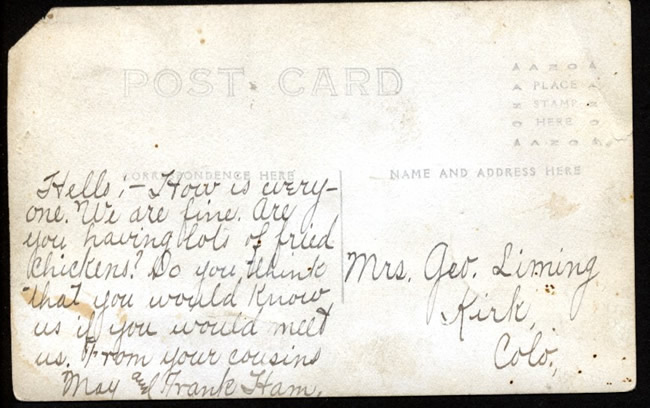 POST CARD
AZOA
PLACE
STAMP
HERE
AZOA
CORRESPONDENCE HERE
NAME AND ADDRESS HERE
Hells,- How is every-
one. We are fine. Are
you having lots of fried
chickens? Do you think
that you would know
us if you would meet
us. From your cousins
May and Frank Ham.
Mrs. Geo. Liming
Kirk,
Colo.,